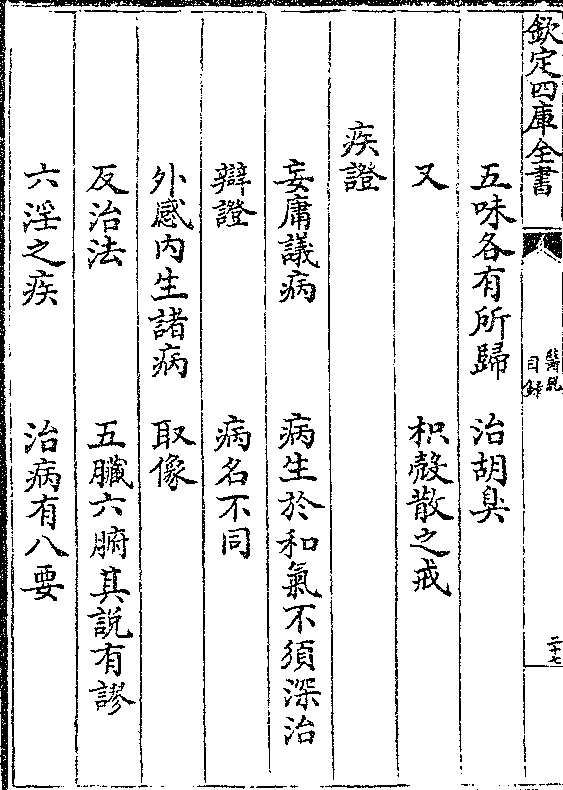 欽定四庫全書
醫說
目録
二十七
五味各有所歸 治胡臭
又 枳殼散之戒
疾證
妄庸議病 病生於和氣不須深治
辯證 病名不同
外感内生諸病 取像
反治法 五臟六腑其說有謬
六淫之疾 治病有八要